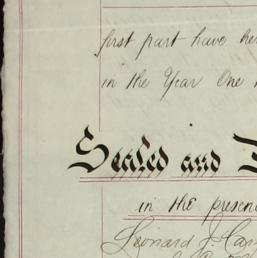 first part have
in the Year One
Sealed and
in the
Leonard J.